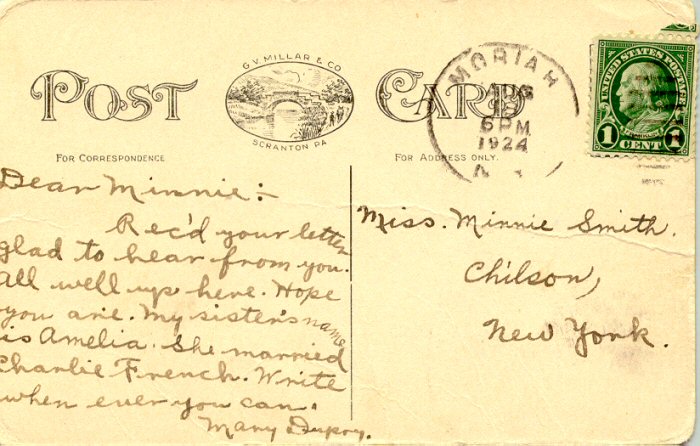 G.V. MILLAR & CO
POST CARD
SCRANTON PA
FOR CORRESPONDENCE
FOR ADDRESS ONLY.
MORIAH
AUG
6 PM
1924
N.Y.
UNITED STATES POSTAGE
FRANKLIN
1 CENT 1
Dear Minnie:-
Rec'd your letter
glad to hear from you.
All well up here. Hope
you are. My sister's name
is Amelia. She married
Charlie French. Write
when ever you can.
Mary Dupry.
Miss. Minnie Smith.
Chilson,
New York.